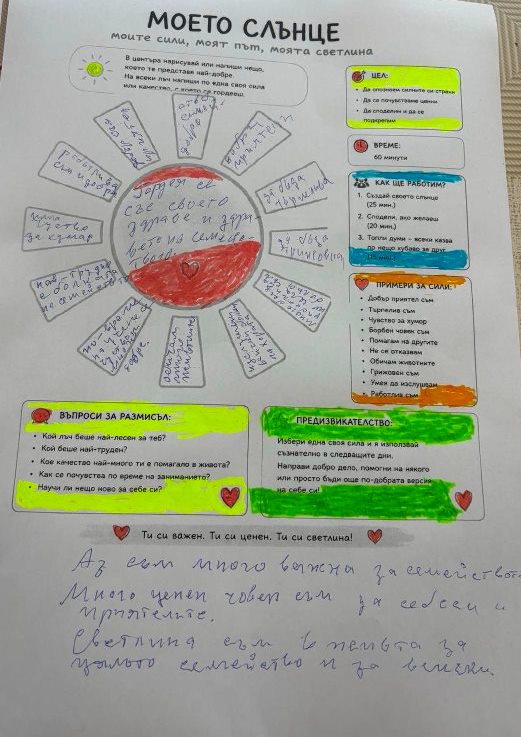 МОЕТО СЛЪНЦЕ
моите сили, моят път, моята светлина
В центъра нарисувай или напиши нещо,
което те представя най-добре.
На всеки лъч напиши по една своя сила
или качество, с което се гордееш.
ЦЕЛ:
Да опознаем силните си страни
Да се почувстваме ценни
Да споделим и да се
подкрепим
ВРЕМЕ:
60 минути
КАК ЩЕ РАБОТИМ?
1. Създай своето слънце
(25 мин.)
2. Сподели, ако желаеш
(20 мин.)
3. Топли думи – всеки казва
по нещо хубаво за друг
(15 мин.)
ПРИМЕРИ ЗА СИЛИ:
Добър приятел съм
Търпелив съм
Чувство за хумор
Борбен човек съм
Помагам на другите
Не се отказвам
Обичам животните
Грижовен съм
Умея да изслушвам
Работлив съм
добра
приятел
да бъда
търпелива
да бъда
чувство
за хумор
Гордея се
със своето
здраве и здра-
вето на семейс-
твото
ВЪПРОСИ ЗА РАЗМИСЪЛ:
Кой лъч беше най-лесен за теб?
Кой беше най-труден?
Кое качество най-много ти е помагало в живота?
Как се почувства по време на заниманието?
Научи ли нещо ново за себе си?
ПРЕДИЗВИКАТЕЛСТВО:
Избери една своя сила и я използвай
съзнателно в следващите дни.
Направи добро дело, помогни на някого
или просто бъди още по-добрата версия
на себе си!
Ти си важен. Ти си ценен. Ти си светлина!
Аз съм много важна за семейството
Много ценен човек съм за себе си и
приятелите.
Светлина съм в живота за
цялото семейство и за всички